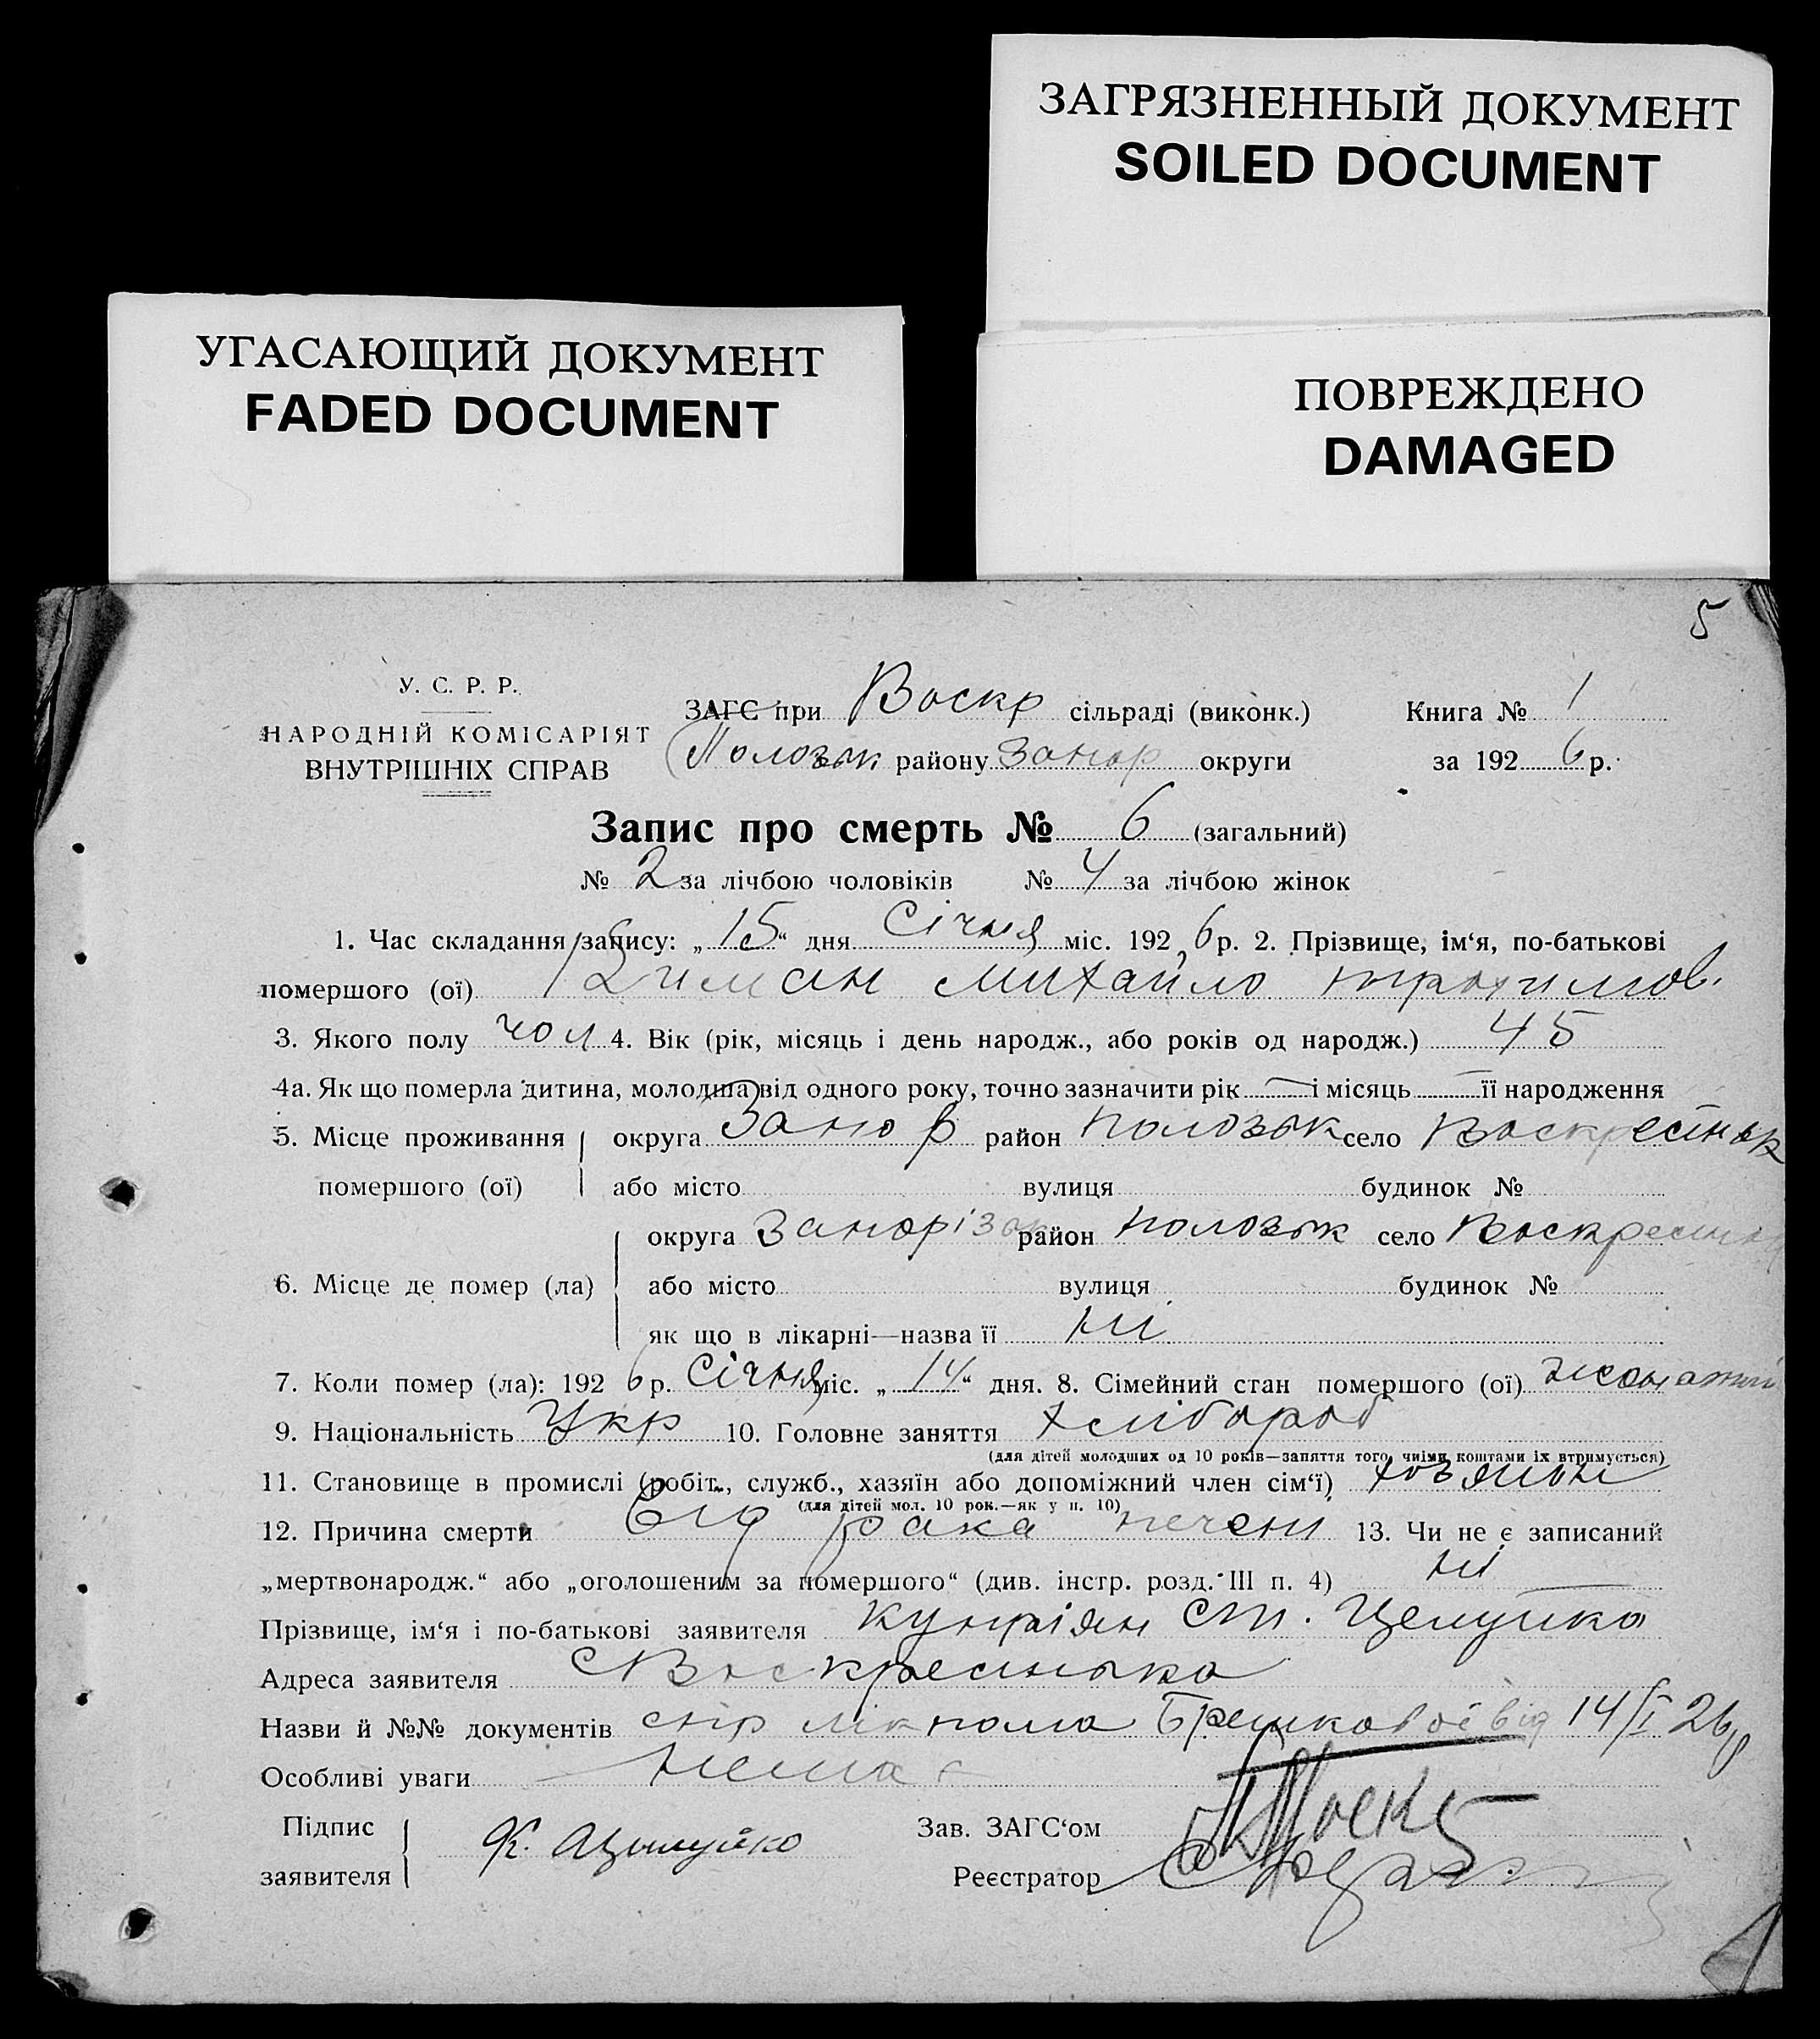 ЗАГРЯЗНЕННЫЙ ДОКУМЕНТ
SOILED DOCUMENT
УГАСАЮЩИЙ ДОКУМЕНТ
FADED DOCUMENT
ПОВРЕЖДЕНО
DAMAGED
5
У. С. Р. Р.
НАРОДНІЙ КОМІСАРІЯТ
ВНУТРІШНІХ СПРАВ
ЗАГС при Воскр сільраді (виконк.) Книга № 1
Пологьк району Запор округи за 192 6 р.
Запис про смерть № 6 (загальний)
№ 2 за лічбою чоловіків № 4 за лічбою жінок
1. Час складання запису: „15“ дня Січня міс. 192 6 р. 2. Прізвище, ім‘я, по-батькові
помершого (ої) Михайло Трохимов.
3. Якого полу чол 4. Вік (рік, місяць і день народж., або років од народж.) 45
4а. Як що померла дитина, молодша від одного року, точно зазначити рік — і місяць — її народження
5. Місце проживання округа Запор район Пологьк село Воскресіньк
помершого (ої) або місто вулиця будинок №
округа Запоріз район Пологьк село Воскресінк
6. Місце де помер (ла) або місто вулиця будинок №
як що в лікарні—назва її ні
7. Коли помер (ла): 192 6 р. Січня міс. „14“ дня. 8. Сімейний стан помершого (ої) жонатий
9. Національність Укр 10. Головне заняття хлібороб
(для дітей молодших од 10 років—заняття того, чиїми коштами їх втримується)
11. Становище в промислі (робіт., служб., хазяїн або допоміжний член сім‘ї) хозяїн
(для дітей мол. 10 рок.—як у п. 10)
12. Причина смерти Від рака печені 13. Чи не є записаний
„мертвонародж.“ або „оголошеним за помершого“ (див. інстр. розд. III п. 4) ні
Прізвище, ім‘я і по-батькові заявителя Купріян Ст. Целуйко
Адреса заявителя с Воскресінька
Назви й №№ документів спр лікпома Брешкової від 14/I 26 р
Особливі уваги немає
Підпис заявителя К. Ацылуйко Зав. ЗАГС‘ом
Реєстратор